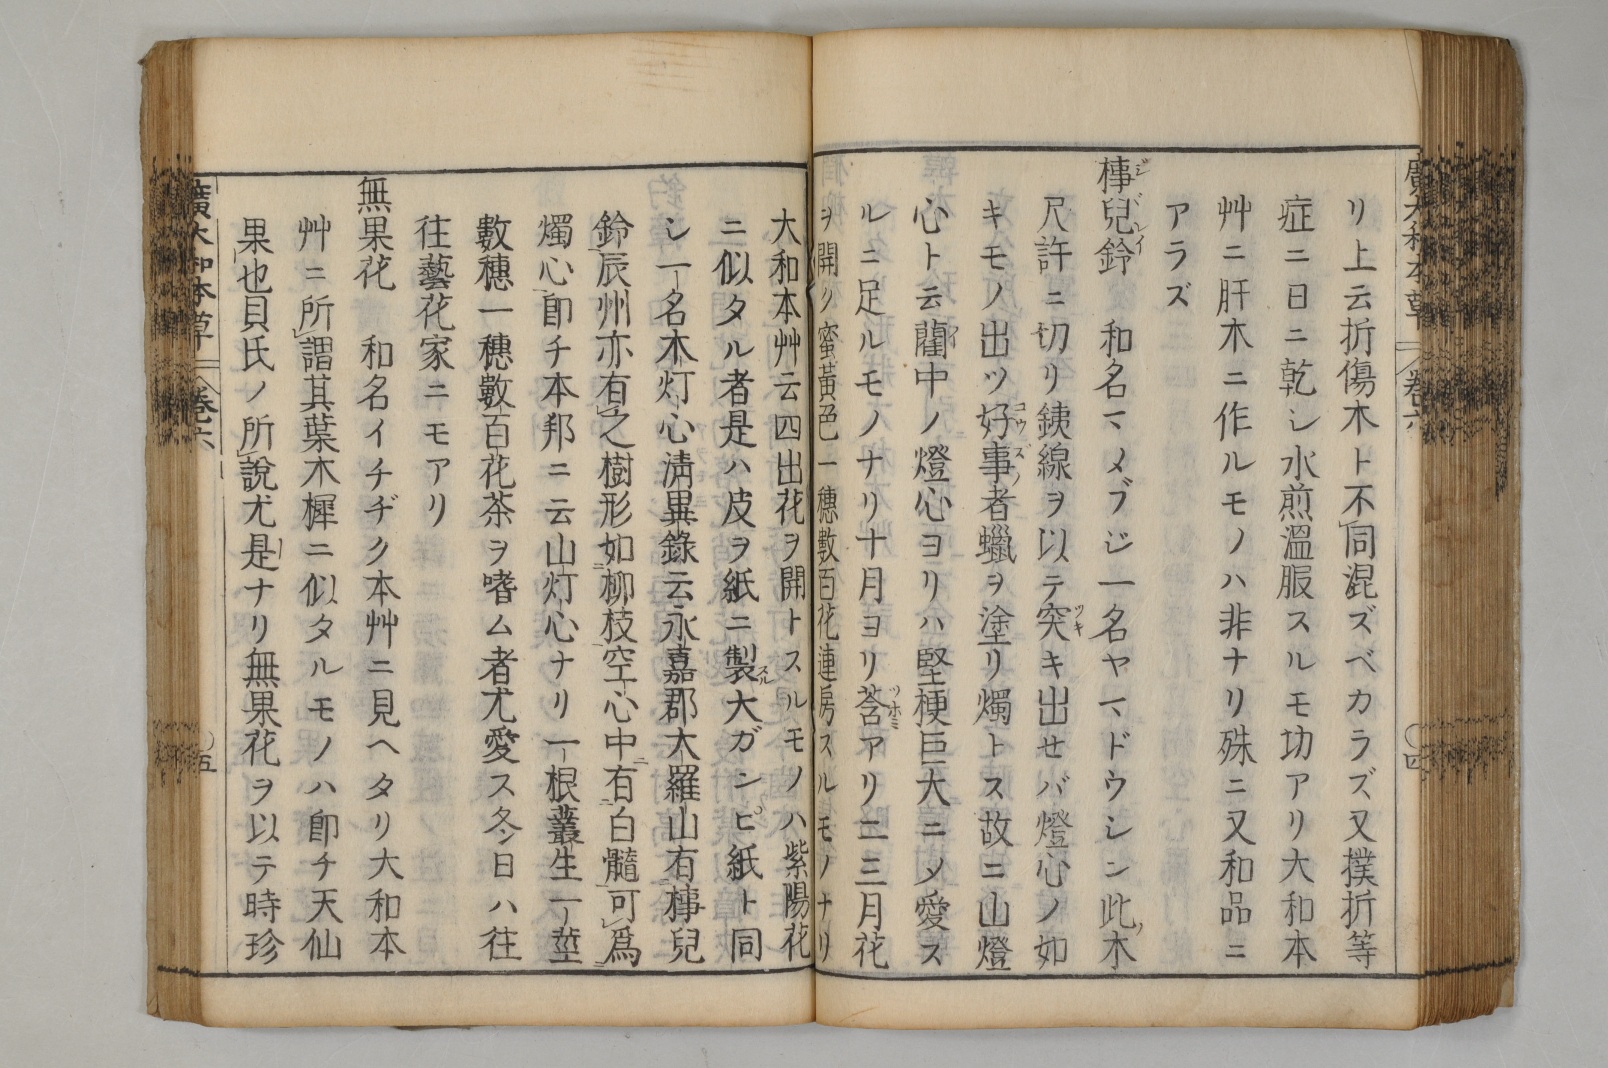 廣大和本草 巻六 ○四
リ上云折傷木ト不同混ズベカラズ又撲折等
症ニ日ニ乾シ水煎溫服スルモ功アリ大和本
艸ニ肝木ニ作ルモノハ非ナリ殊ニ又和品ニ
アラズ
榑兒鈴 和名マメブジ一名ヤマドウシン此木
尺許ニ切リ銕線ヲ以テ突キ出セバ燈心ノ如
キモノ出ツ好事者蠟ヲ塗リ燭トス故ニ山燈
心ト云藺中ノ燈心ヨリハ堅梗巨大ニメ愛ス
ルニ足ルモノナリ十月ヨリ莟アリ二三月花
ヲ開ク蜜黃色一穗數百花連房スルモノナリ
大和本艸云四出花ヲ開トスルモノハ紫陽花
ニ似タル者是ハ皮ヲ紙ニ製大ガンピ紙ト同
シ一名木灯心淸異錄云永嘉郡大羅山有榑兒
鈴辰州亦有之樹形如柳枝空心中有白髓可爲
燭心卽チ本邦ニ云山灯心ナリ一根叢生一莖
數穗一穗數百花茶ヲ嗜ム者尤愛ス冬日ハ往
往藝花家ニモアリ
無果花 和名イチヂク本艸ニ見ヘタリ大和本
艸ニ所謂其葉木樨ニ似タルモノハ卽チ天仙
果也貝氏ノ所說尤是ナリ無果花ヲ以テ時珍
廣大和本草 巻六 ○五